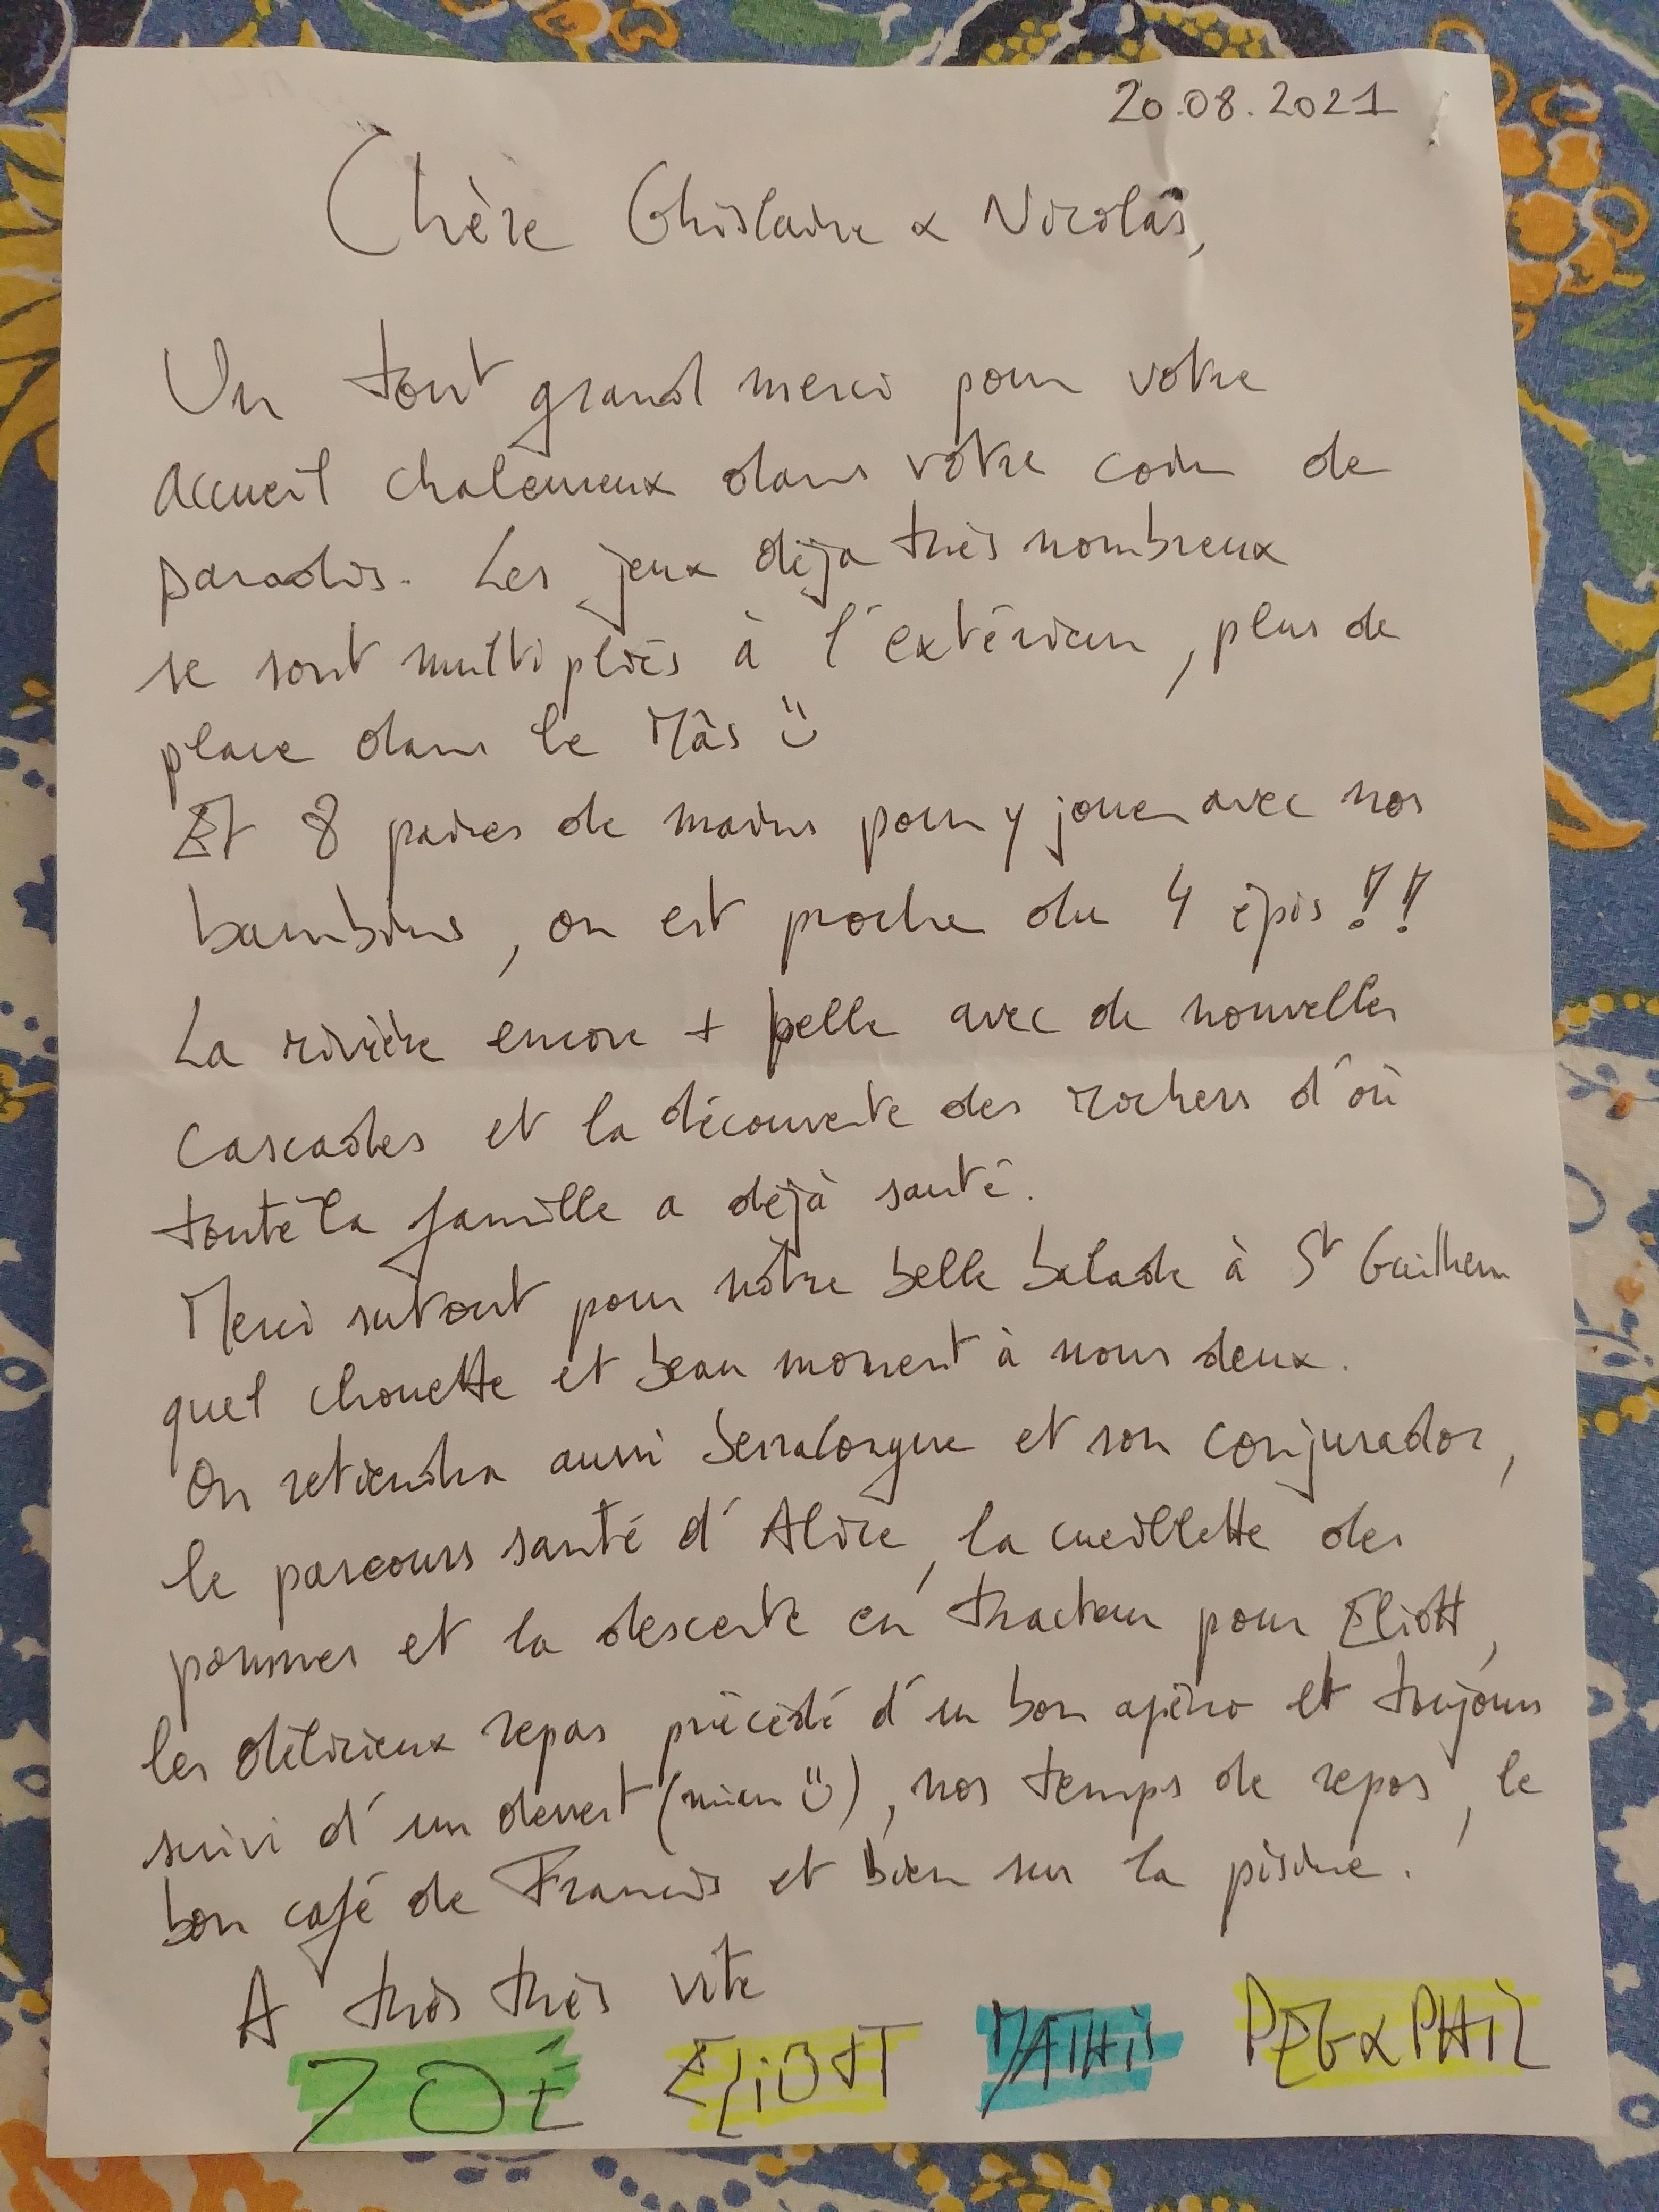 20.08.2021
Chère Ghislaine & Nicolas,
Un tout grand merci pour votre
accueil chaleureux dans votre coin de
paradis. Les jeux déja très nombreux
se sont multipliés à l'extérieur, plus de
place dans le Mâs
Et 8 paires de mains pour y jouer avec nos
bambins, on est proche du 4 épis !!
La rivière encore + belle avec de nouvelles
cascades et la découverte des rochers d'où
toute la famille a déjà sauté.
Merci surtout pour nôtre belle balade à St Guilhem
quel chouette et beau moment à nous deux.
On retiendra aussi Serralongue et son conjurador,
le parcours santé d'Alice, la cueillette des
pommes et la descente en tracteur pour Eliott,
les délicieux repas précédé d'un bon apéro et toujours
suivi d'un dessert (miam), nos temps de repos, le
bon café de Francis et bien sur la piscine.
A très très vite
ZOÉ ELiOTT MATHiS PEG & PHiL